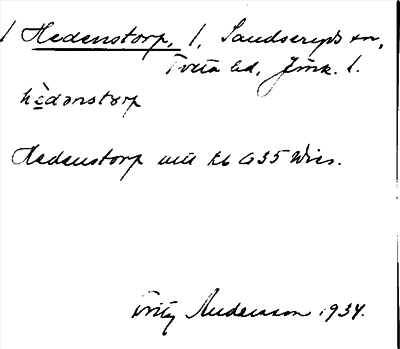 Hedenstorp, 1, Sandseryds sn,
Tveta hd, Jönk. l.
hèdənstorp
Hedenstorp
Fritz Andersson 1934.